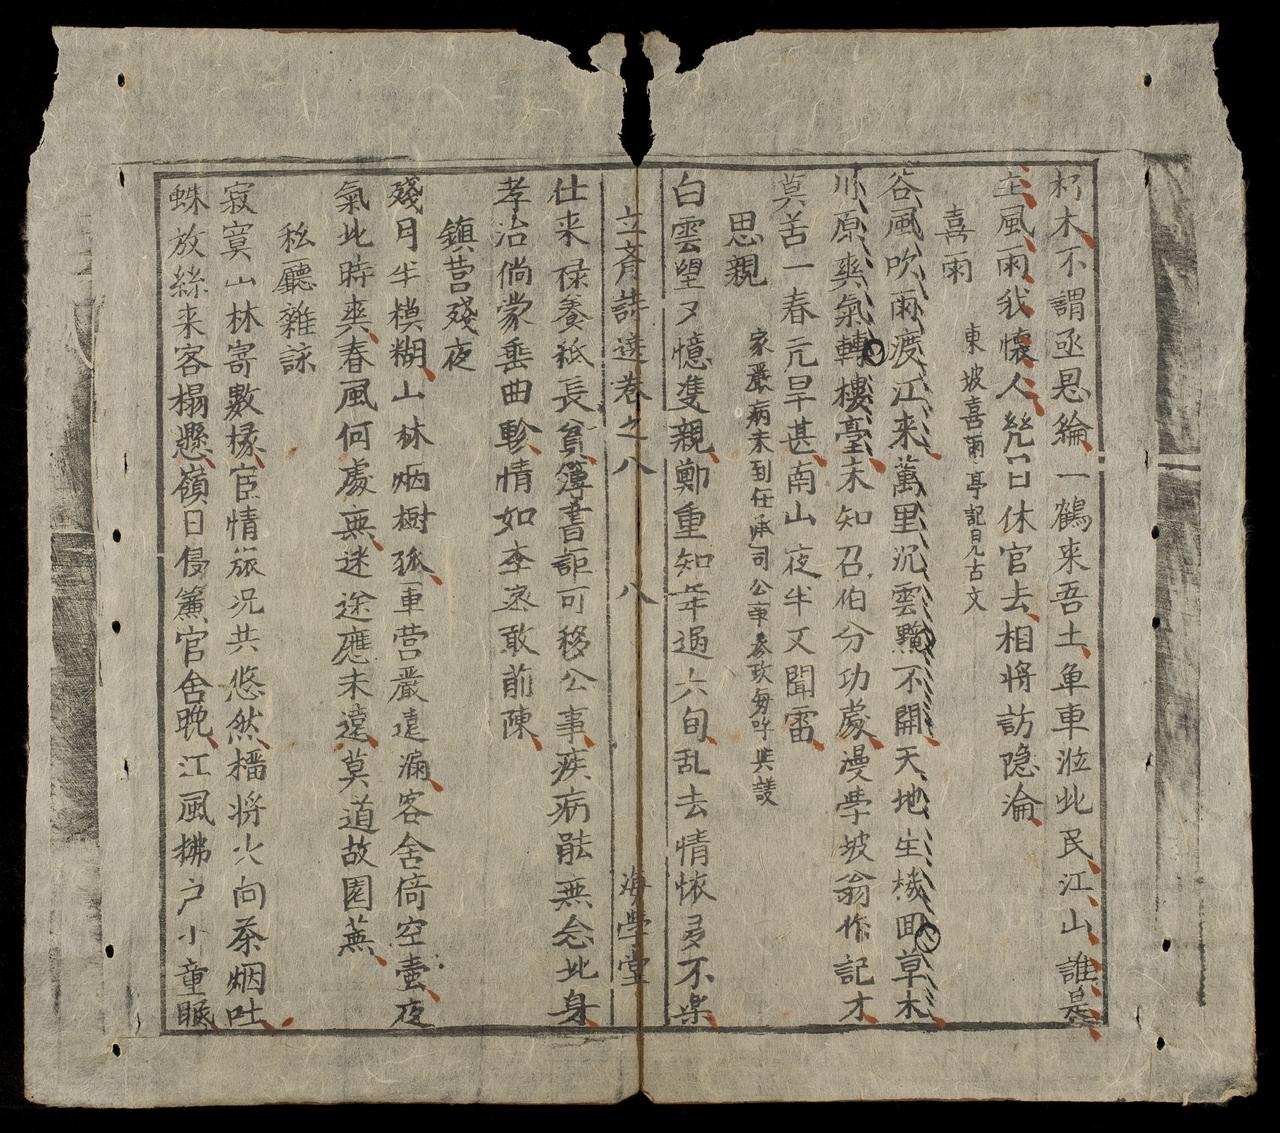 朽木不謂亟恩綸一鶴來吾土車車涖此民江山誰是
主風雨我懷人幾日休官去相將訪隐淪
喜雨
東坡喜雨亭記見古文
谷風吹雨渡江来萬里沉雲黯不開天地生機回草木
川原爽氣轉樓臺未知召伯分功處漫學坡翁作記才
莫苦一春亢旱甚南山夜半又聞雷
思親
家嚴病未到任 司公事 每呼與議
白雲望又憶雙親鄭重知年過六旬乱去情懐多不楽
立齋詩選卷之八 八 海學堂
仕来祿養祇長貧簿書詎可移公事疾病能無念此身
孝治倘蒙垂曲軫情如李 敢前陳
鎮营殘夜
殘月半模糊山林烟樹孤車营嚴遠漏客舍倚空壷夜
氣此時爽春風何處無迷途應未遠莫道故園蕪
私廳雜詠
寂寞山林寄數椽宦情旅况共悠然檣将火向茶烟吐
蛛放絲来客榻懸嶺日侵簾官舍晚江風拂户小童眠